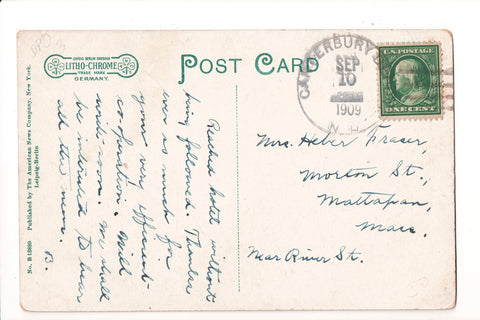 LEIPZIG BERLIN DRESDEN
LITHO-CHROME
TRADE MARK
GERMANY.
POST CARD
CANTERBURY
SEP
10
1909
N. H.
U.S. POSTAGE
ONE CENT
No. B 13869 Published by The American News Company, New York.
Leipzig-Berlin
Reached hotel without
being followed. Thanks
ever so much for
your very efficient
co-operation. Will
write soon. We shall
be interested to hear
all the news.
B.
Mrs. Heber Fraser,
Morton St.,
Mattapan,
Mass.
Near River St.